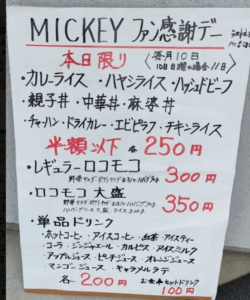 MICKEY ファン感謝デー
本日限り
毎月10日
10日日曜の場合11日
・カレーライス ・ハヤシライス ・ハッシュドビーフ
・親子丼 ・中華丼 ・麻婆丼
・チャーハン・ドライカレー・エビピラフ・チキンライス
半額以下 各250円
・レギュラーロコモコ
300円
・ロコモコ大盛
350円
・単品ドリンク
・ホットコーヒー・アイスコーヒー・紅茶・アイスティー
・コーラ・ジンジャエール・カルピス・アイスミルク
・アップルジュース・ピーチジュース・オレンジジュース
・マンゴージュース・キャラメルラテ
各200円
お食事セットドリンク
100円